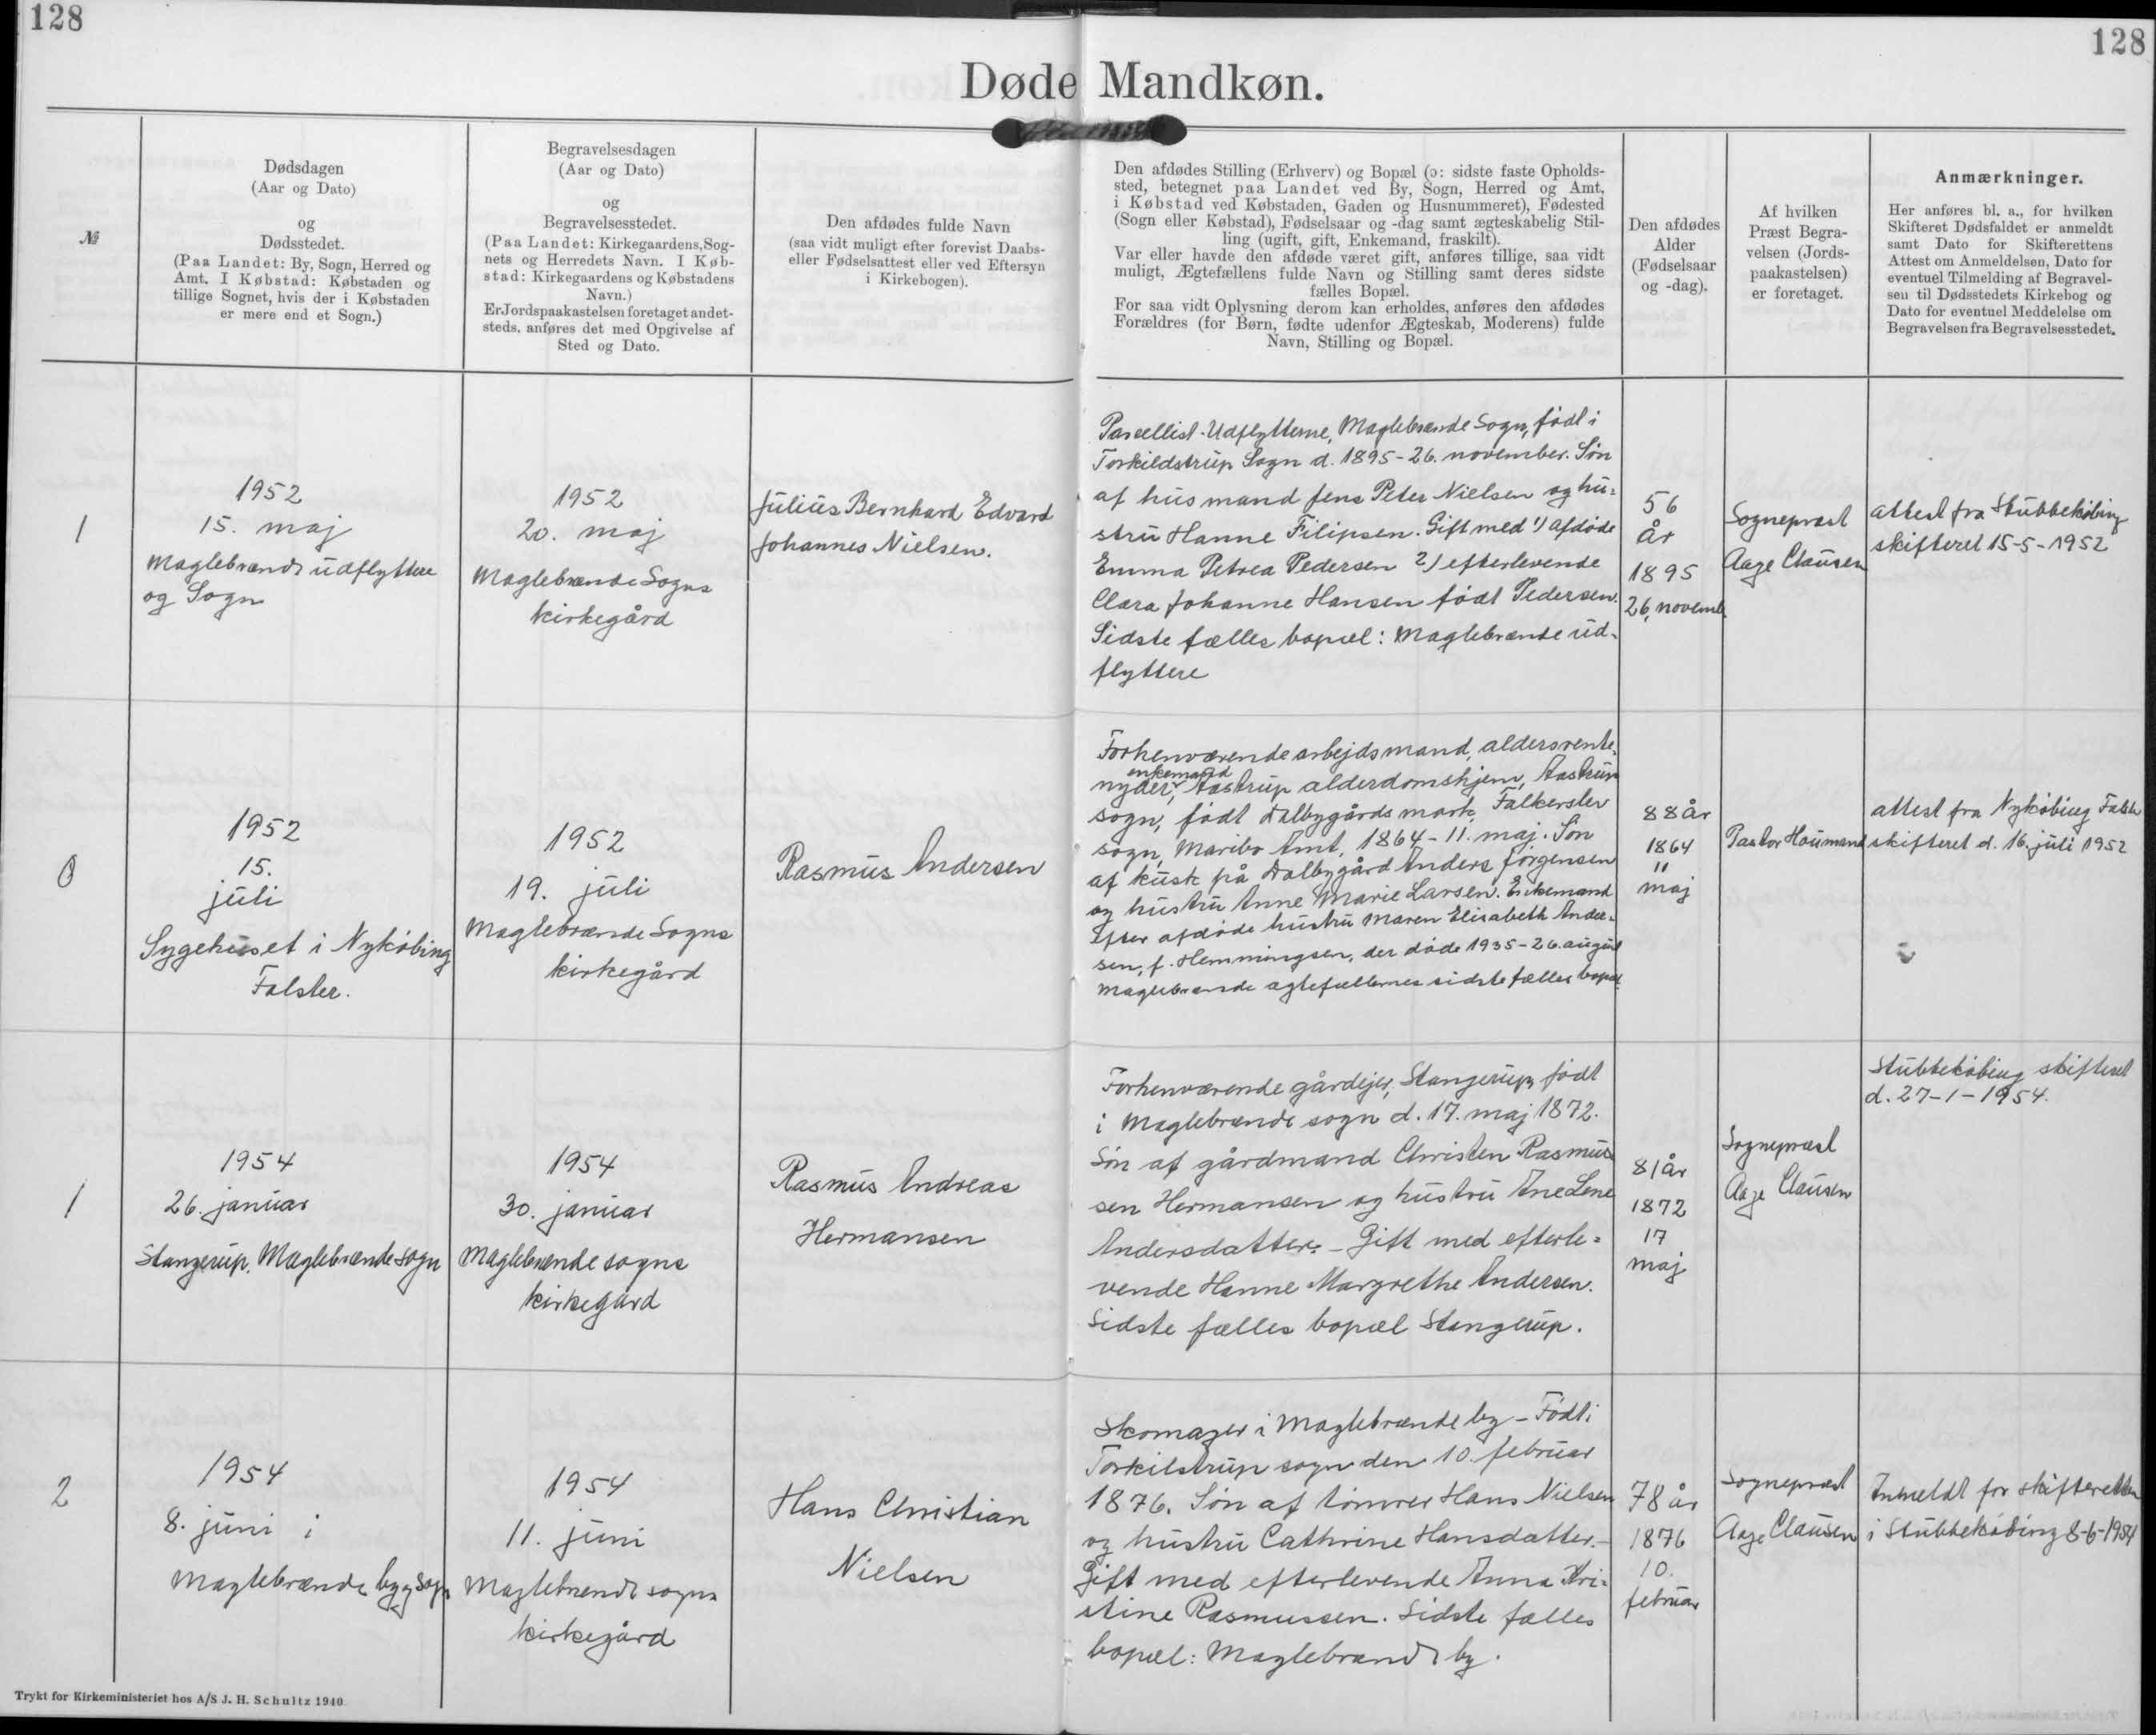 128
128
Døde Mandkøn.
№
Dødsdagen
(Aar og Dato)
og
Dødsstedet.
(Paa Landet: By, Sogn, Herred og
Amt. I Købstad: Købstaden og
tillige Sognet, hvis der i Købstaden
er mere end et Sogn.)
Begravelsesdagen
(Aar og Dato)
og
Begravelsesstedet.
(Paa Landet: Kirkegaardens, Sog-
nets og Herredets Navn. I Køb-
stad: Kirkegaardens og Købstadens
Navn.)
Er Jordspaakastelsen foretaget andet-
steds, anføres det med Opgivelse af
Sted og Dato.
Den afdødes fulde Navn
(saa vidt muligt efter forevist Daabs-
eller Fødselsattest eller ved Eftersyn
i Kirkebogen).
Den afdødes Stilling (Erhverv) og Bopæl (ɔ: sidste faste Opholds-
sted, betegnet paa Landet ved By, Sogn, Herred og Amt,
i Købstad ved Købstaden, Gaden og Husnummeret), Fødested
(Sogn eller Købstad), Fødselsaar og -dag samt ægteskabelig Stil-
ling (ugift, gift, Enkemand, fraskilt).
Var eller havde den afdøde været gift, anføres tillige, saa vidt
muligt, Ægtefællens fulde Navn og Stilling samt deres sidste
fælles Bopæl.
For saa vidt Oplysning derom kan erholdes, anføres den afdødes
Forældres (for Børn, fødte udenfor Ægteskab, Moderens) fulde
Navn, Stilling og Bopæl.
Den afdødes
Alder
(Fødselsaar
og -dag).
Af hvilken
Præst Begra-
velsen (Jords-
paakastelsen)
er foretaget.
Anmærkninger.
Her anføres bl. a., for hvilken
Skifteret Dødsfaldet er anmeldt
samt Dato for Skifterettens
Attest om Anmeldelsen, Dato for
eventuel Tilmelding af Begravel-
sen til Dødsstedets Kirkebog og
Dato for eventuel Meddelelse om
Begravelsen fra Begravelsesstedet.
1
1952
15. maj
Maglebrænde udflyttere
og Sogn
1952
20. maj
Maglebrænde Sogns
kirkegård
Julius Bernhard Edvard
Johannes Nielsen.
Parcellist. Udflytterne, Maglebrænde Sogn, født i
Torkildstrup Sogn d. 1895-26. november. Søn
af husmand Jens Peter Nielsen og hu=
stru Hanne Filipsen. Gift med 1) afdøde
Emma Petrea Pedersen 2) efterlevende
Clara Johanne Hansen født Pedersen.
Sidste fælles bopæl: Maglebrænde ud-
flyttere
56
år
1895
26. novemb.
Sognepræst
Aage Clausen
attest fra Stubbekøbing
skifteret 15-5-1952
0
1952
15.
juli
Sygehuset i Nykøbing
Falster.
1952
19. juli
Maglebrænde Sogns
kirkegård
Rasmus Andersen
Forhenværende arbejdsmand, aldersrente-
enkemand
nyder, Aastrup alderdomshjem, Aastrup
sogn, født Dalbygårds mark, Falkerslev
sogn, Maribo Amt, 1864-11. maj. Søn
af kusk på Dalbygård Anders Jørgensen
og hustru Anne Marie Larsen. Enkemand
efter afdøde hustru Maren Elisabeth Ander-
sen, f. Hemmingsen, der døde 1935-26. august
Maglebrænde ægtefællernes sidste fælles bopæl.
88 år
1864
11
maj
Pastor Houmand
attest fra Nykøbing Falster
skifteret d. 16. juli 1952
1
1954
26. januar
Stangerup, Maglebrænde sogn
1954
30. januar
Maglebrænde sogns
kirkegård
Rasmus Andreas
Hermansen
Forhenværende gårdejer, Stangerup, født
i Maglebrænde sogn d. 17. maj 1872.
Søn af gårdmand Christen Rasmus
sen Hermansen og hustru Ane Lene
Andersdatter. - Gift med efterle=
vende Hanne Margrethe Andersen.
Sidste fælles bopæl Stangerup.
81 år
1872
17
maj
Sognepræst
Aage Clausen
Stubbekøbing skifteret
d. 27-1-1954.
2
1954
8. juni i
Maglebrænde by og sogn
1954
11. juni
Maglebrænde sogns
kirkegård
Hans Christian
Nielsen
Skomager i Maglebrænde by - Født i
Torkilstrup sogn den 10. februar
1876. Søn af tømrer Hans Nielsen
og hustru Cathrine Hansdatter. -
Gift med efterlevende Anna Kri=
stine Rasmussen. Sidste fælles
bopæl: Maglebrænde by.
78 år
1876
10.
februar
Sognepræst
Aage Clausen
Anmeldt for skifteretten
i Stubbekøbing 8-6-1954
Trykt for Kirkeministeriet hos A/S J. H. Schultz 1940